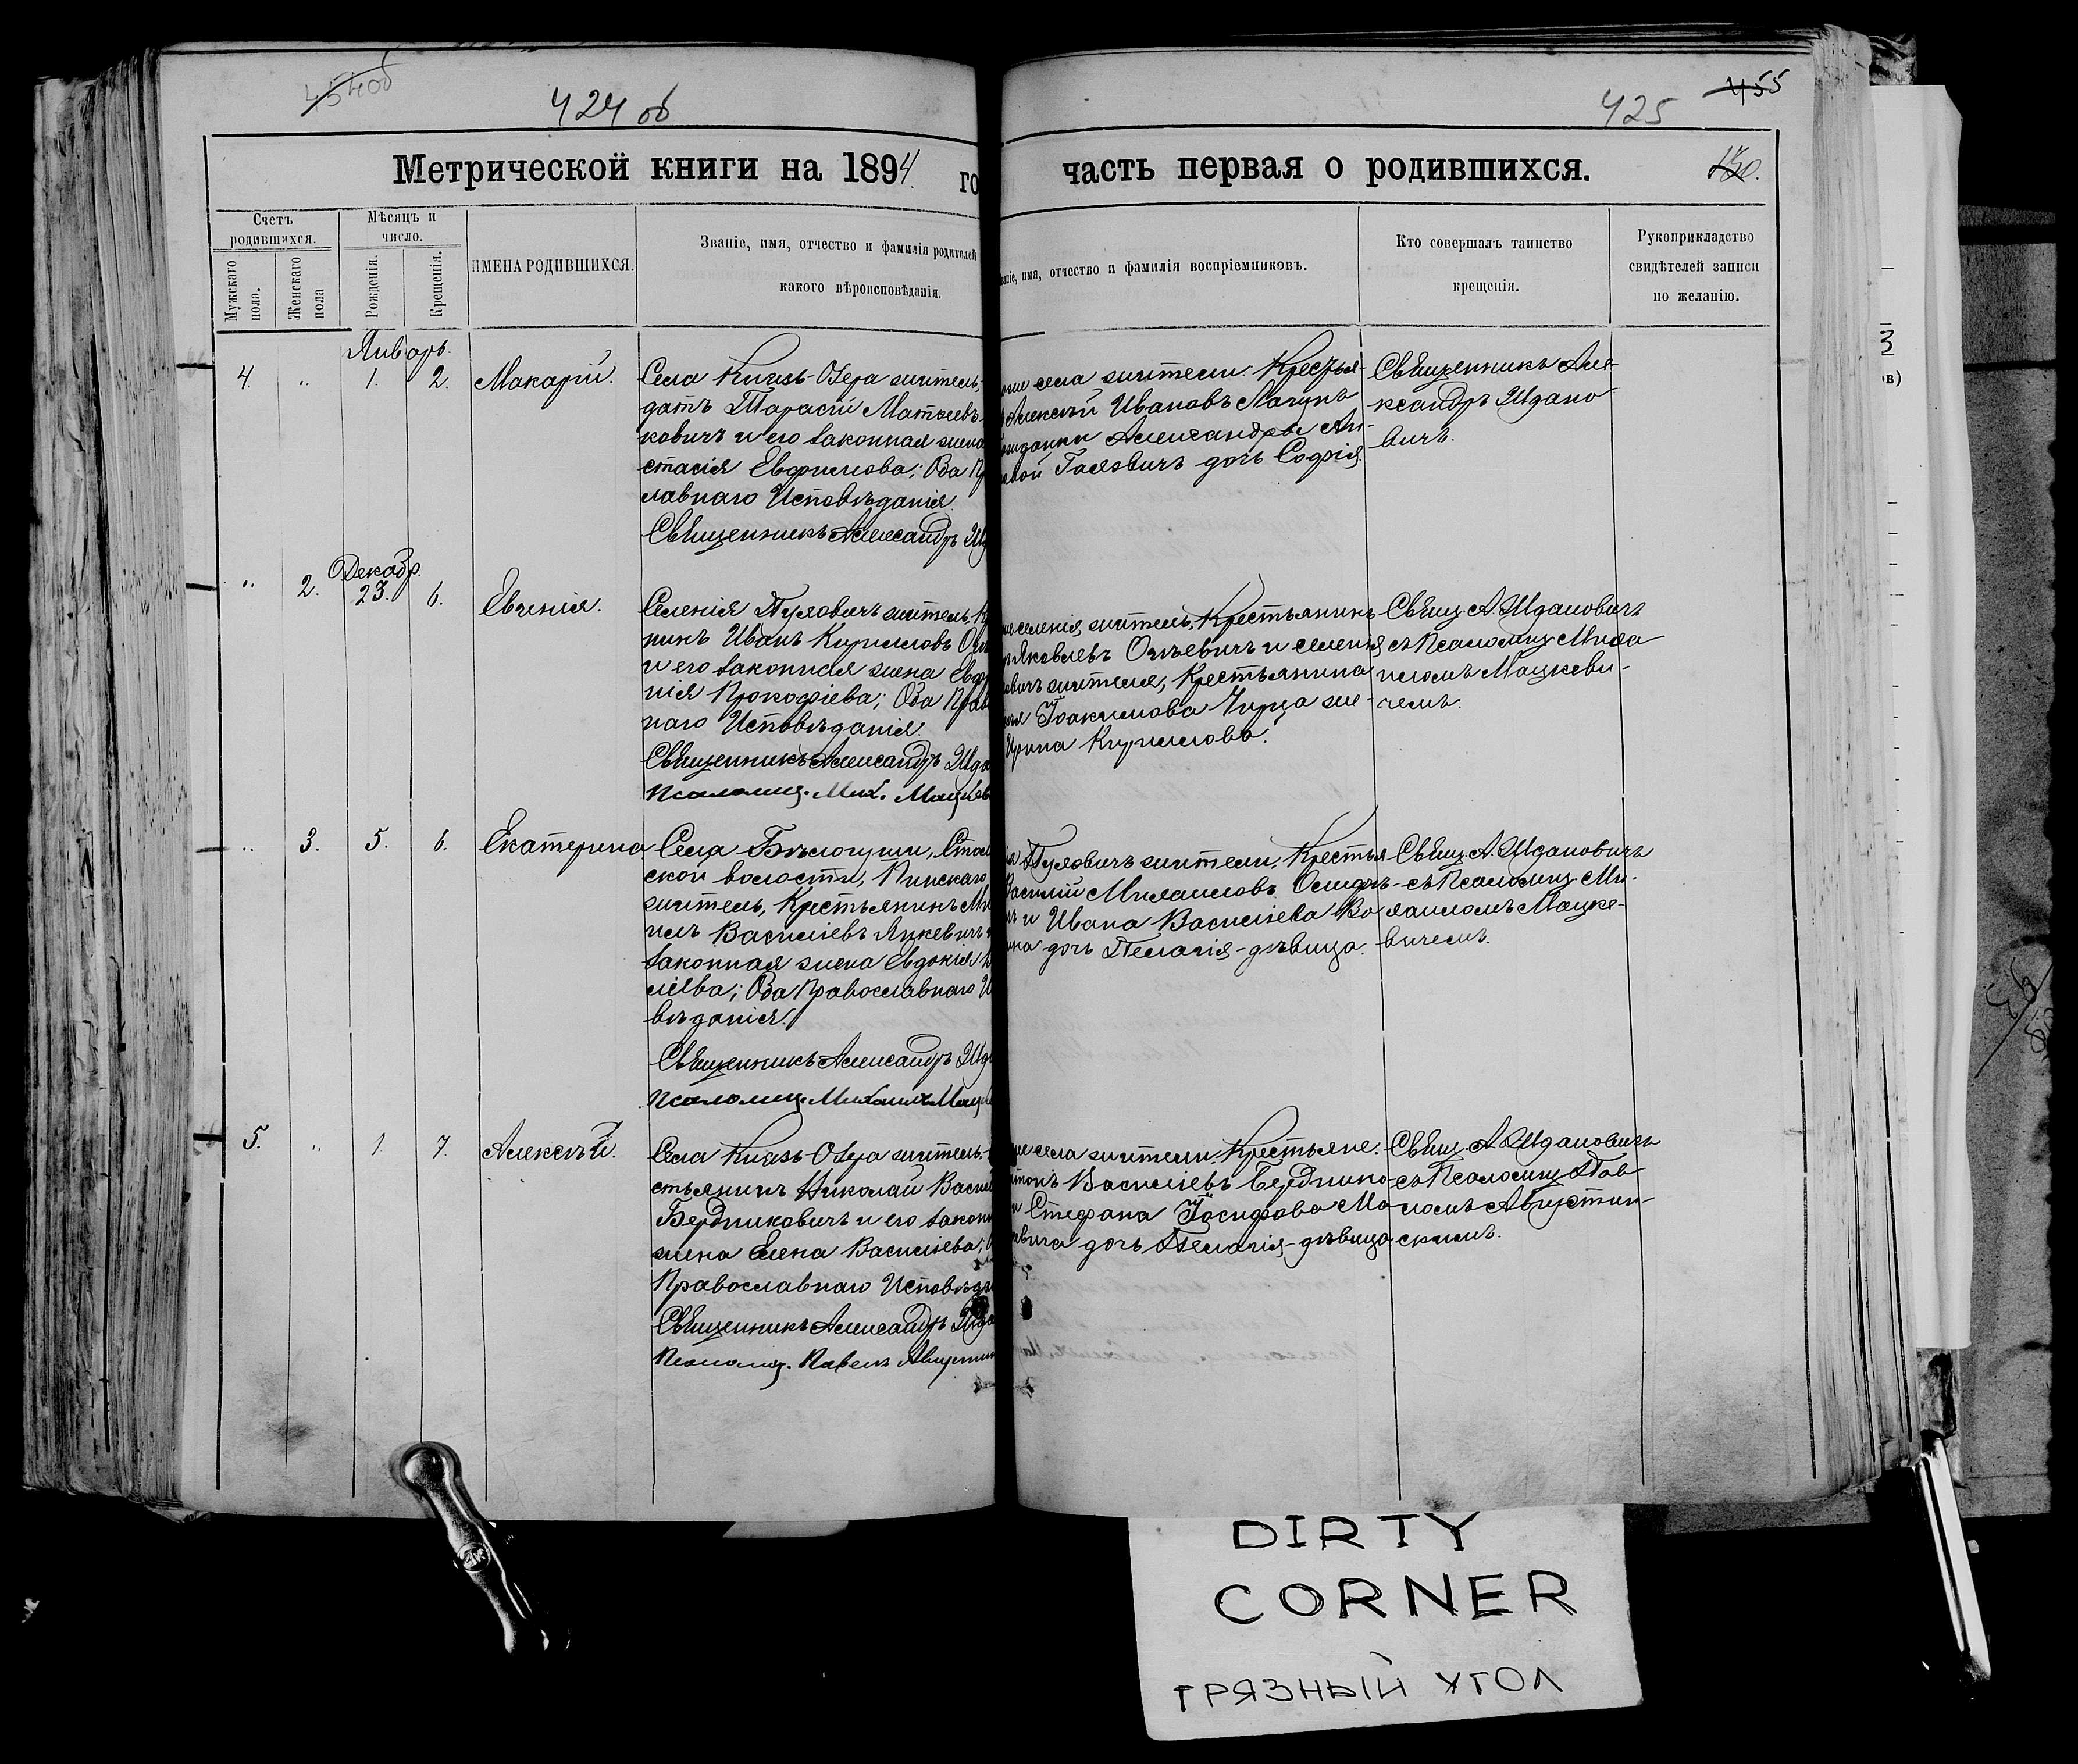 454об
424 об
425
455
Метрической книги на 1894. го
часть первая о родившихся.
130.
Счетъ родившихся.
Мѣсяцъ и число.
Мужскаго пола.
Женскаго пола
Рожденія.
Крещенія.
ИМЕНА РОДИВШИХСЯ.
Званіе, имя, отчество и фамилія родителей
какого вѣроисповѣданія.
имя, отчество и фамилія воспріемниковъ.
Кто совершалъ таинство
крещенія.
Рукоприкладство
свидѣтелей записи
по желанію.
Январь.
4. " 1. 2. Макарій.
Села Князь-Озера житель,
датъ Тарасій Матѳеевъ
ковичъ и его законная жена
стасія Евфимова; Оба Пр
лавнаго Исповѣданія.
Священникъ Александръ Жд
села жители: Крестья-
Алексѣй Ивановъ Лагунъ
Александры Ан-
евой Галевичъ дочь Софія.
Священникъ Але-
ксандръ Ждано-
вичъ.
Декабр.
" 2. 23. 6. Евгенія.
Селенія Пузовичъ житель, Кр
нинъ Иванъ Кирилловъ
и его законная жена Евдо
нія Прокофіева; Оба Прав
наго Исповѣданія.
Священникъ Александръ Жда
Псаломщ. Мих. Мацкев
селенія житель, Крестьянинъ
Яковлевъ и селенія
вичъ жителя, Крестьянина
Іоакимова Чирца же-
Ирина Кириллова.
Свящ. А. Ждановичъ
съ Псаломщ. Миха
иломъ Мацкеви-
чемъ.
" 3. 5. 6. Екатерина
Села Бѣлогуши, Стол
ской волости, Пинскаго
житель, Крестьянинъ Ми
илъ Василіевъ Яцкевичъ
законная жена Евдокія
ліева; Оба Православнаго И
вѣданія.
Священникъ Александръ Жд
Псаломщ. Михаилъ Мацке
Пузовичъ жители, Крестья
Василій Михаиловъ
и Ивана Василіева Во
на дочь Пелагія - дѣвица.
Свящ. А. Ждановичъ
съ Псаломщ. Ми-
хаиломъ Мацке-
вичемъ.
5. " 1. 7. Алексѣй.
Села Князь-Озера житель,
стьянинъ Николай Васил
Бердниковичъ и его законн
жена Елена Василіева;
Православнаго Исповѣда
Священникъ Александръ Жда
Псаломщ. Павелъ Августин
села жители: Крестьяне.
Василіевъ Бердніко-
Стефана Іосифова Мо
вича дочь Пелагія - дѣвица
Свящ. А. Ждановичъ
съ Псаломщ. Пав
ломъ Августин-
скимъ.
DIRTY
CORNER
ГРЯЗНЫЙ УГОЛ